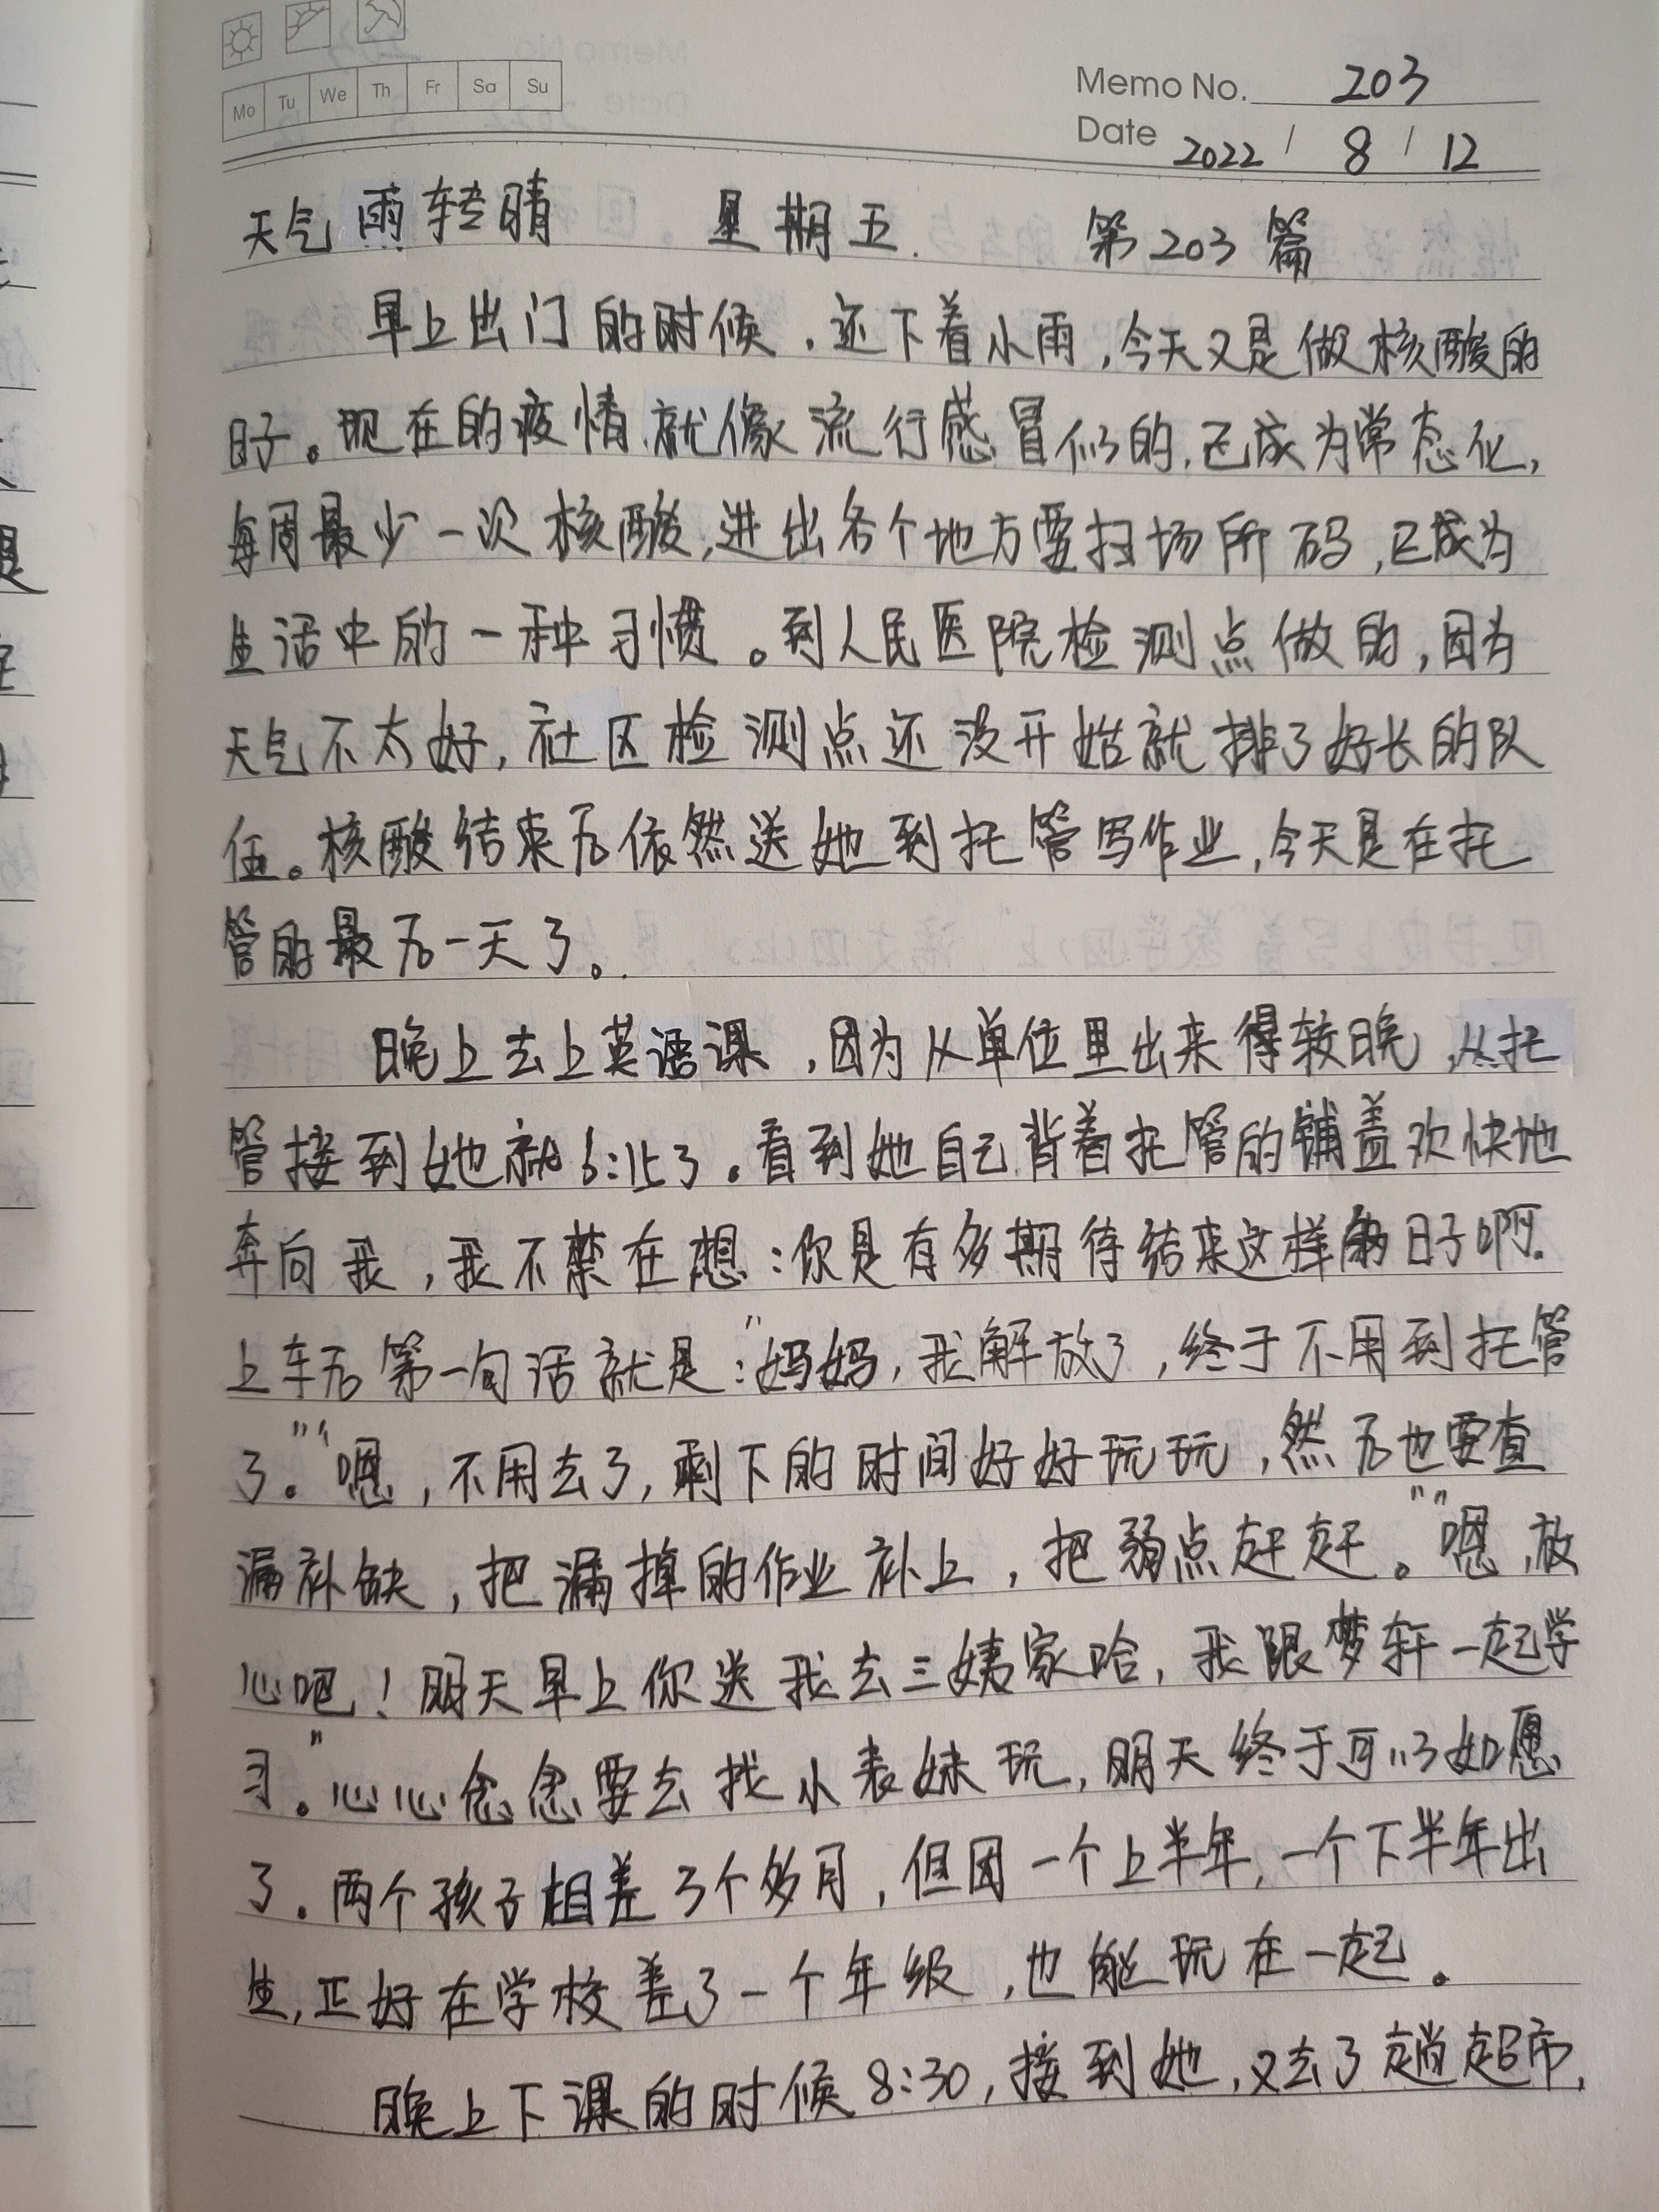 Mo Tu We Th Fr Sa Su
Memo No. 203
Date 2022 / 8 / 12
天气雨转晴 星期五. 第203篇
早上出门的时候，还下着小雨，今天又是做核酸的
日子。现在的疫情就像流行感冒似的，已成为常态化，
每周最少一次核酸，进出各个地方要扫场所码，已成为
生活中的一种习惯。到人民医院检测点做的，因为
天气不太好，社区检测点还没开始就排了好长的队
伍。核酸结束后依然送她到托管写作业，今天是在托
管的最后一天了。
晚上去上英语课，因为从单位里出来得较晚，从托
管接到她就6:15了。看到她自己背着托管的铺盖欢快地
奔向我，我不禁在想：你是有多期待结束这样的日子啊.
上车后第一句话就是：“妈妈，我解放了，终于不用到托管
了。”“嗯，不用去了，剩下的时间好好玩玩，然后也要查
漏补缺，把漏掉的作业补上，把弱点赶赶。”“嗯，放
心吧！明天早上你送我去三姨家哈，我跟梦轩一起学
习。”心心念念要去找小表妹玩，明天终于可以如愿
了。两个孩子相差3个多月，但因一个上半年，一个下半年出
生，正好在学校差了一个年级，也能玩在一起。
晚上下课的时候8:30，接到她，又去了趟超市，